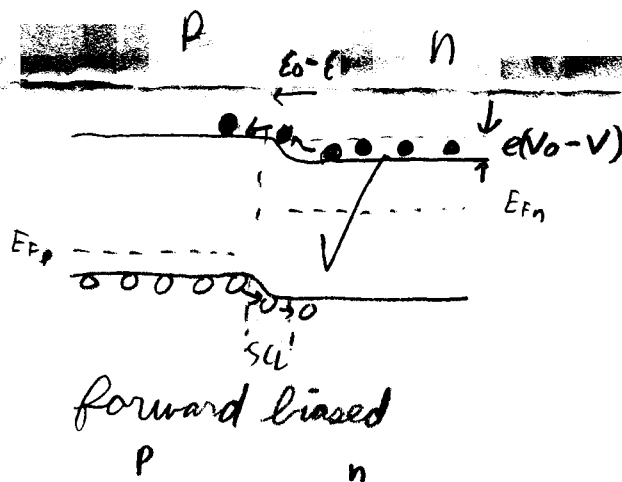 P n
Ɛ₀-Ɛ
e(V₀-V)
E_Fn
E_Fp
SCL
forward biased
P n